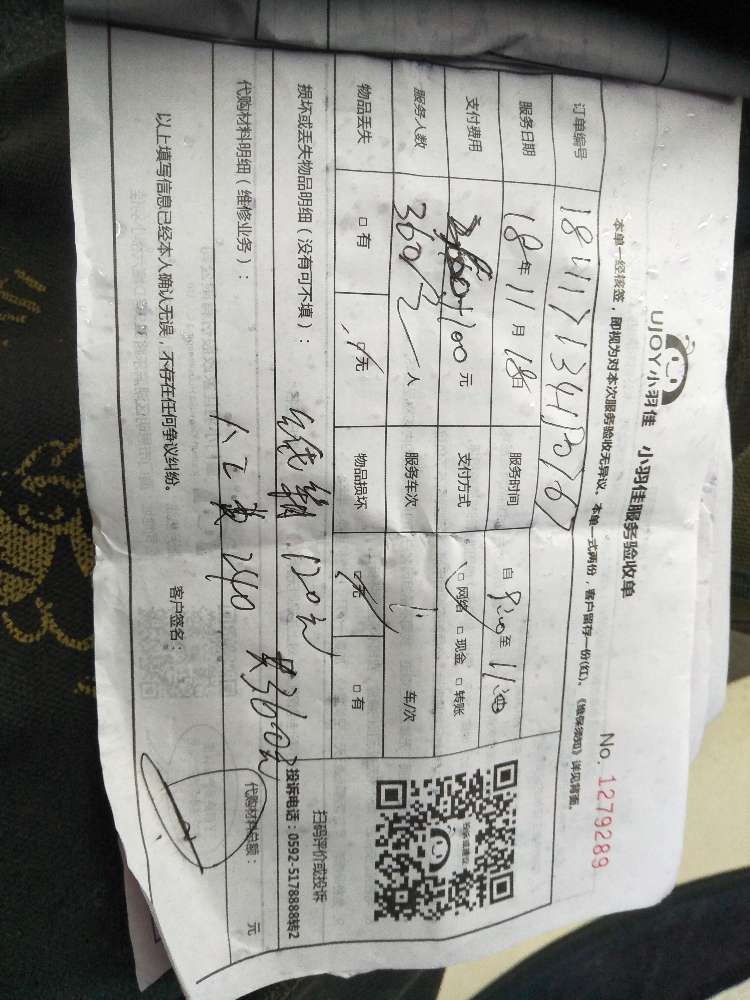 UJOY小羽佳 小羽佳服务验收单
No. 1279289
本单一经核签，即视为对本次服务验收无异议。本单一式两份，客户留存一份(红)。《维保须知》详见背面。
订单编号
服务日期 18年 11月 18日 服务时间 自 至
支付费用 100元 支付方式 □网络 □现金 □转账
服务人数 360元 人 服务车次 车/次
物品丢失 □有 □无 物品损坏 □无 □有
扫码评价或投诉
投诉电话：0592-5178888转2
损坏或丢失物品明细（没有可不填）： 120元
共360元
代购材料明细（维修业务）： 人工费 240
代购材料总额： 元
以上填写信息已经本人确认无误，不存在任何争议纠纷。 客户签名：